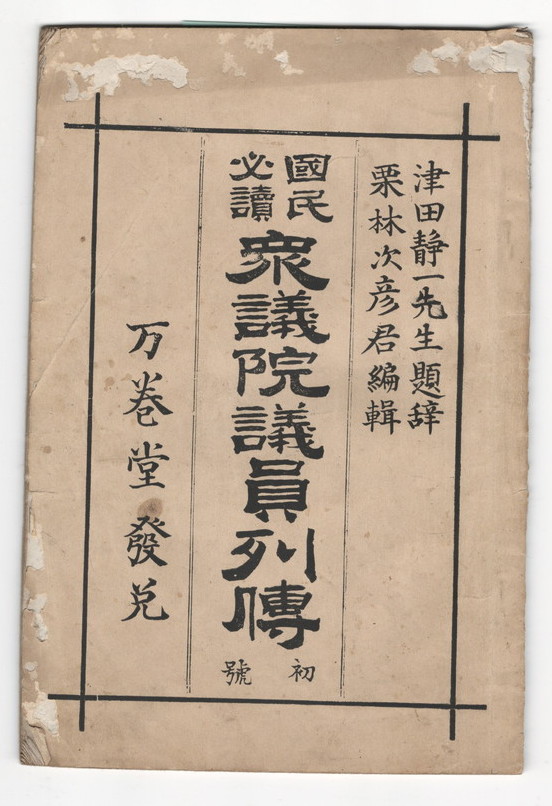 津田静一先生題辞
栗林次彦君編輯
國民
必讀
衆議院議員列傳
初號
万巻堂發兌